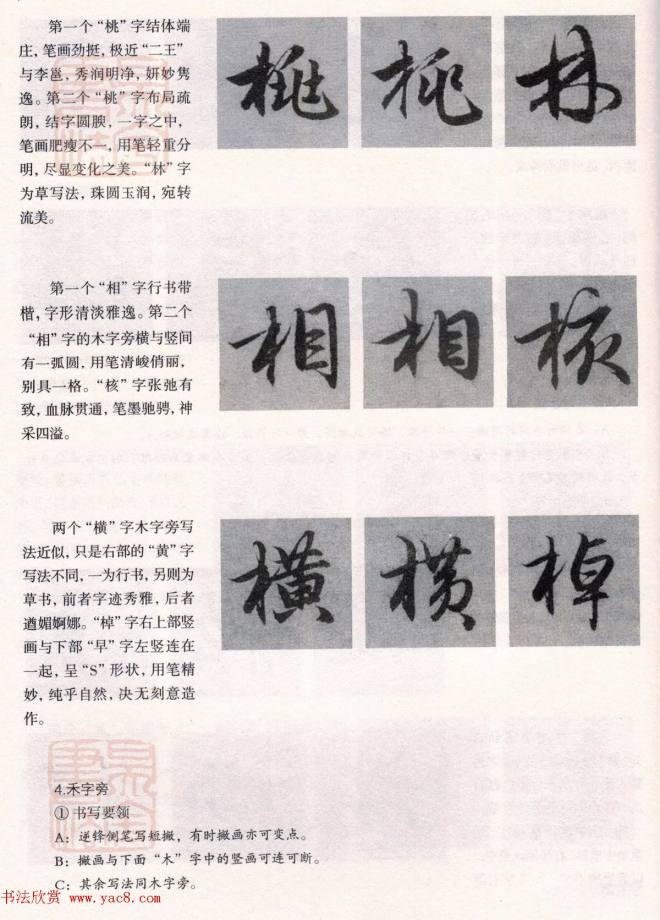 第一个“桃”字结体端
庄，笔画劲挺，极近“二王”
与李邕，秀润明净，妍妙隽
逸。第二个“桃”字布局疏
朗，结字圆腴，一字之中，
笔画肥瘦不一，用笔轻重分
明，尽显变化之美。“林”字
为草写法，珠圆玉润，宛转
流美。
桃 桃 林
第一个“相”字行书带
楷，字形清淡雅逸。第二个
“相”字的木字旁横与竖间
有一弧圆，用笔清峻俏丽，
别具一格。“核”字张弛有
致，血脉贯通，笔墨驰骋，神
采四溢。
相 相 核
两个“横”字木字旁写
法近似，只是右部的“黄”字
写法不同，一为行书，另则为
草书，前者字迹秀雅，后者
遒媚婀娜。“棹”字右上部竖
画与下部“早”字左竖连在
一起，呈“S”形状，用笔精
妙，纯乎自然，决无刻意造
作。
横 横 棹
4.禾字旁
① 书写要领
A：逆锋侧笔写短撇，有时撇画亦可变点。
B：撇画与下面“木”字中的竖画可连可断。
C：其余写法同木字旁。
书法欣赏 www.yac8.com